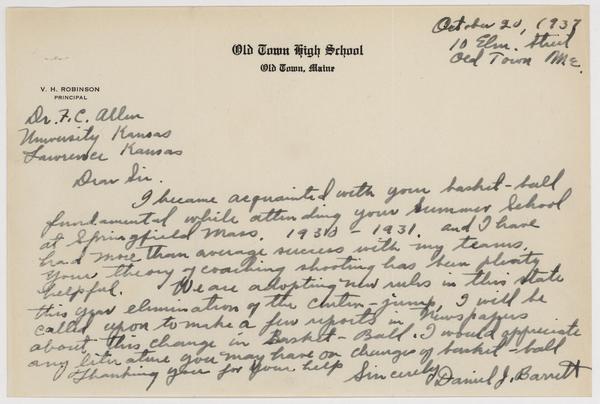 October 20, 1937
10 Elm. Street
Old Town Me.
Old Town High School
Old Town, Maine
V. H. ROBINSON
PRINCIPAL
Dr. F. C. Allen
University Kansas
Lawrence Kansas
Dear Sir.
I became acquainted with your basket-ball
fundamental while attending your Summer School
at Springfield Mass. 1930-1931. and I have
had more than average success with my teams.
Your theory of coaching shooting has been
helpful. We are adopting new rules in this state
this year elimination of the center-jump, I will be
called upon to make a few reports in Newspapers
about this change in Basket-Ball. I would appreciate
any literature you may have on change of basket-ball
Thanking you for your help
Sincerely
Daniel J. Barrett